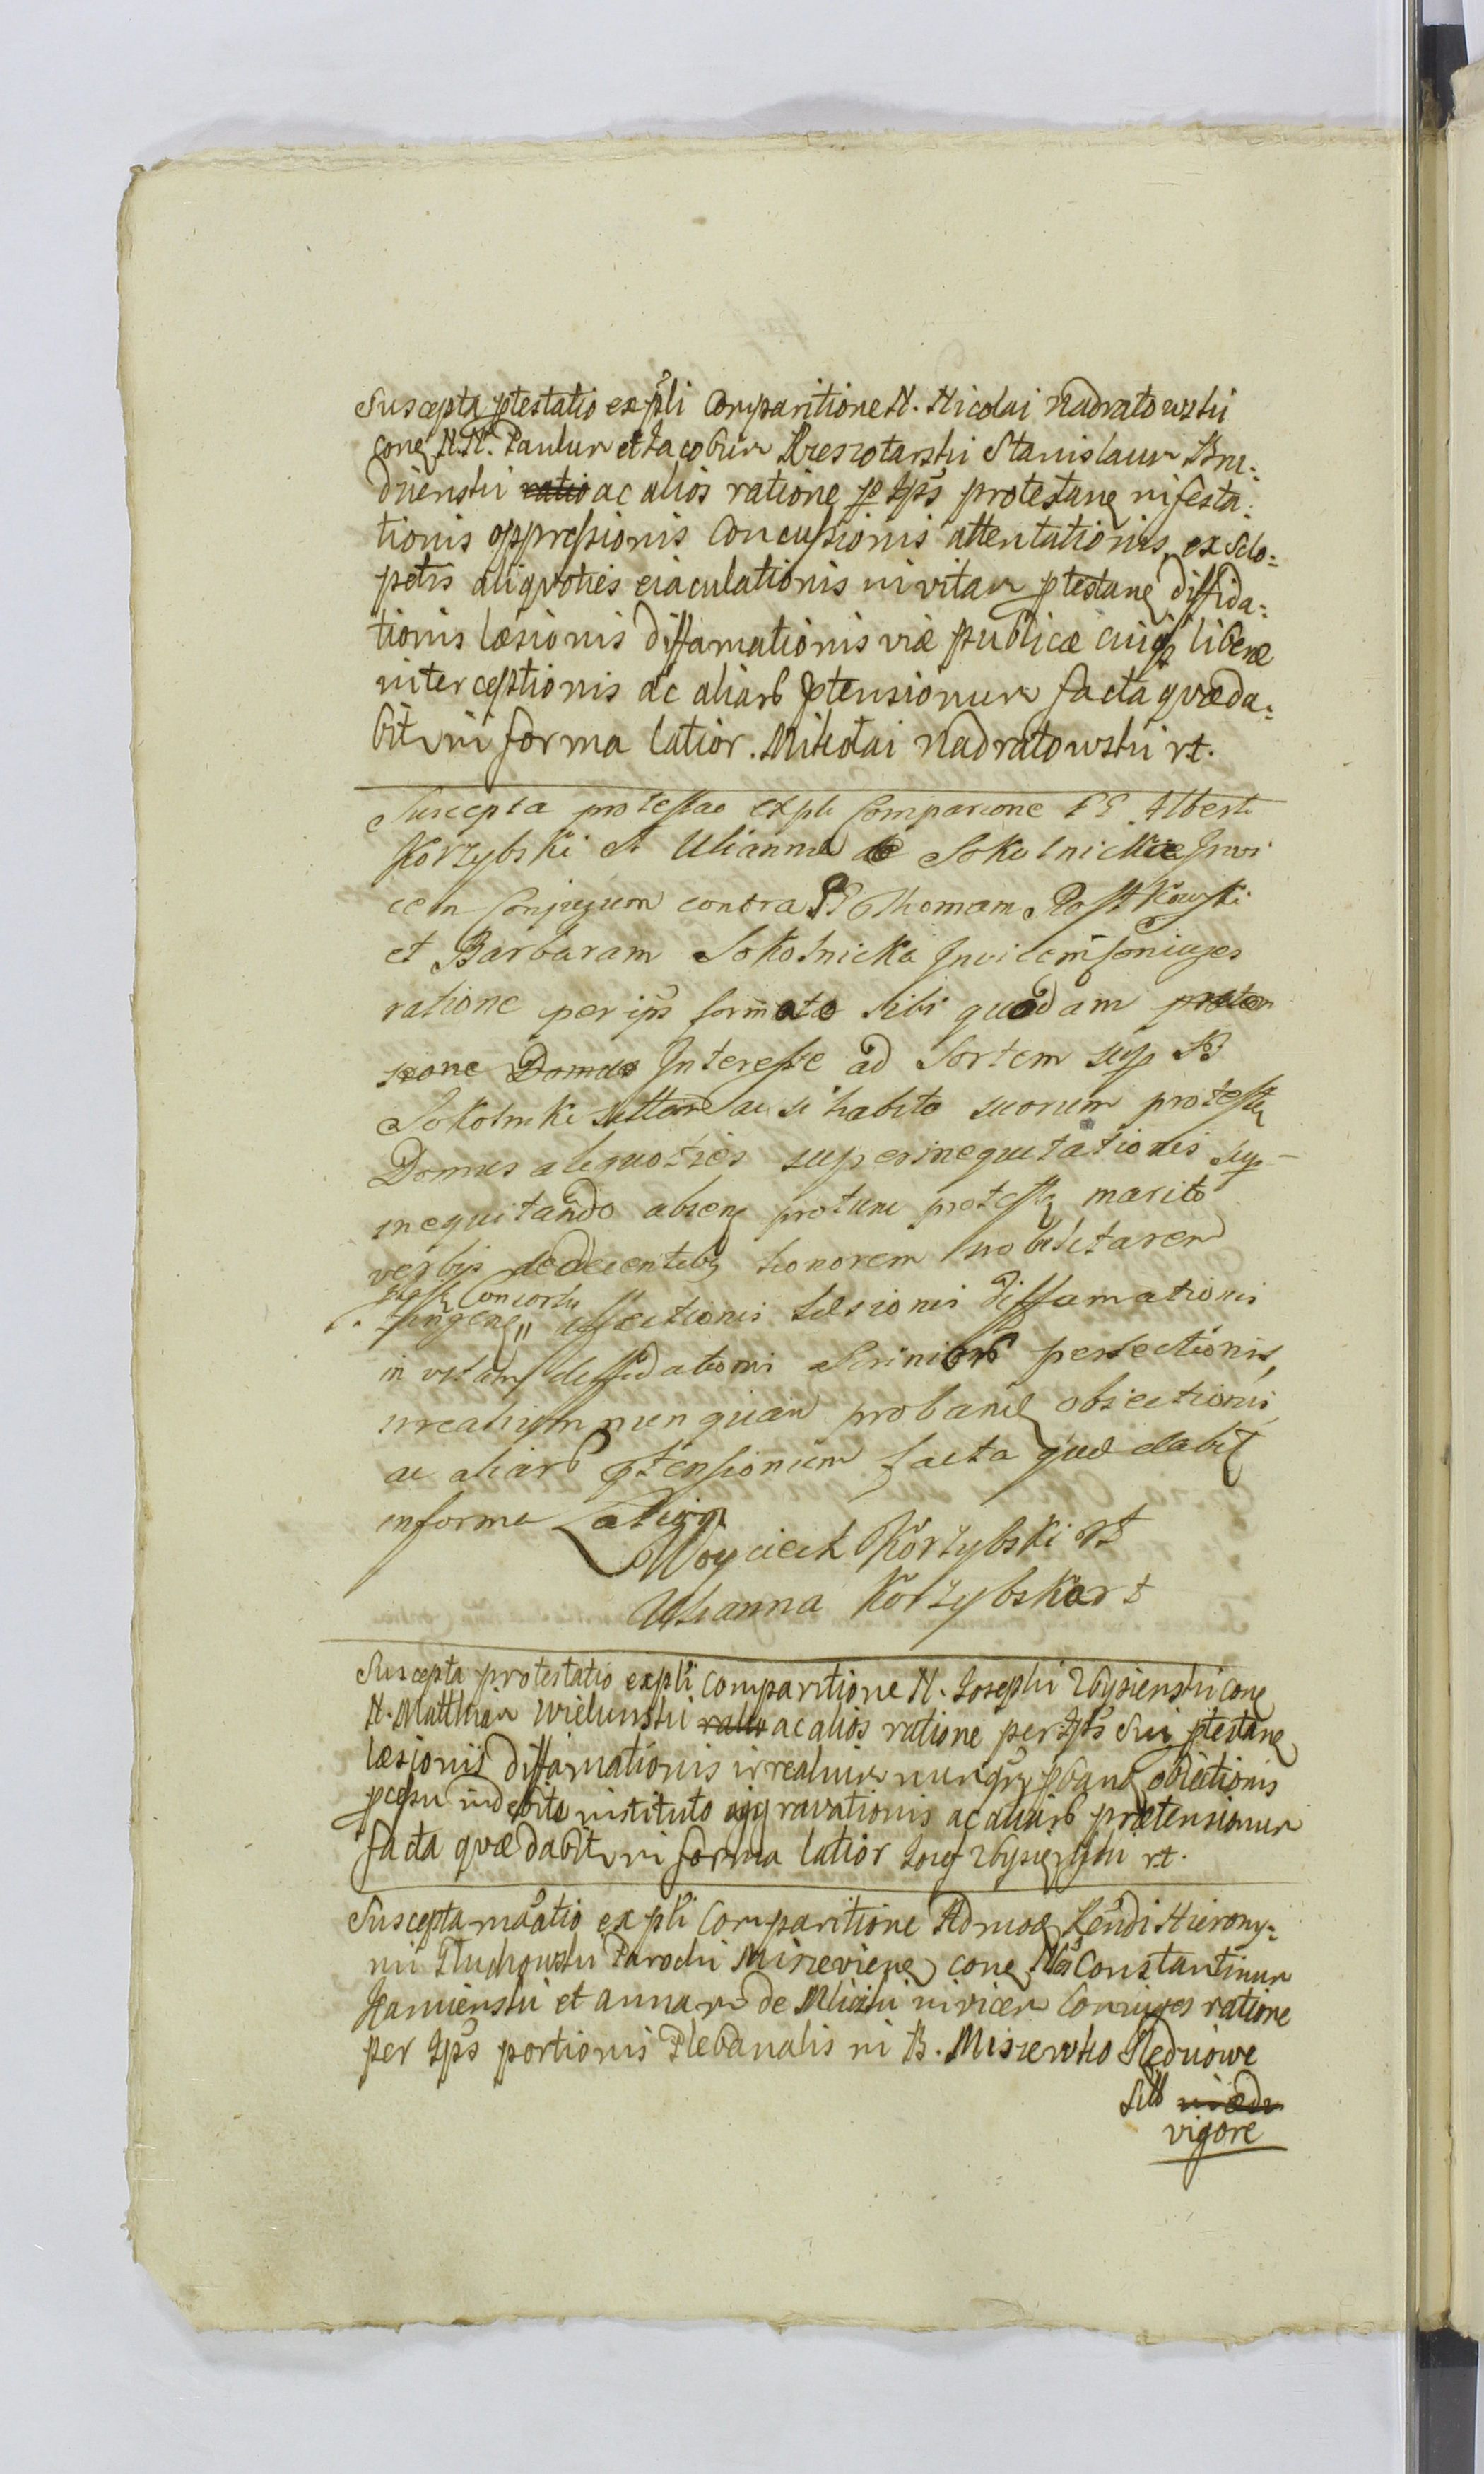 Suscepta ptestatio expli Comparitione N. Nicolai Nadratowski
cone N.N. Paulum et Jacobum Stanislaum Bru-
dnienski ratio ac alios ratione p Ips protestane infesta-
tionis oppressionis Concussionis attentationis ex Sclo-
petis aliqvoties eiaculationis in vitam ptestane diffida-
tionis læsionis diffamationis viæ publicæ libere
interceptionis ac aliarb ptensionum facta qvæ da-
bit in forma latior. Mikolai Nadratowski rt.
Suscepta protestao expli Comparione Alberti
Korzybski et Ulianna de Sokolnickie Invi
cem Conjugum contra Thomam Rostkowski
et Barbaram Sokolnicka Invicem Coniuges
ratione per ips formato sibi quodam preten
sione Domus Interesse ad Sortem sup B
Sokolniki ac si habito suorum protestę
Domus aliquoties superinequitationis sup-
inequitando absenę protunc protestę marito
verbis dedecentibę honorem
Consortis
affectionis læsionis diffamationis
in vitam deffidationis Scriniorb
nunquam probane obiectionis
ac aliarb ptensionum facta quæ dabit
in forma Latiori
Woyciech Korzybski rt
Ulianna Korzybska rt
Suscepta protestatio expli Comparitione N. Josephi Zbysienski cone
N. Matthiam Wielunski ratio ac alios ratione per Ips sui ptestane
læsionis diffamationis irrealium nunqꝫ pbane obiectionis
pcessu indebite instituto aggravationis ac aliarb prætensionum
facta qvæ dabit in forma latior rt.
Suscepta mãatio expli Comparitione Admoę Rendi Hierony-
mi Pluchowski Parochi Misieviene cone Constantinum
Kamienski et Annam de invicem Coniuges ratione
per Ips portionis Plebanalis in B.
Sitt
vigore